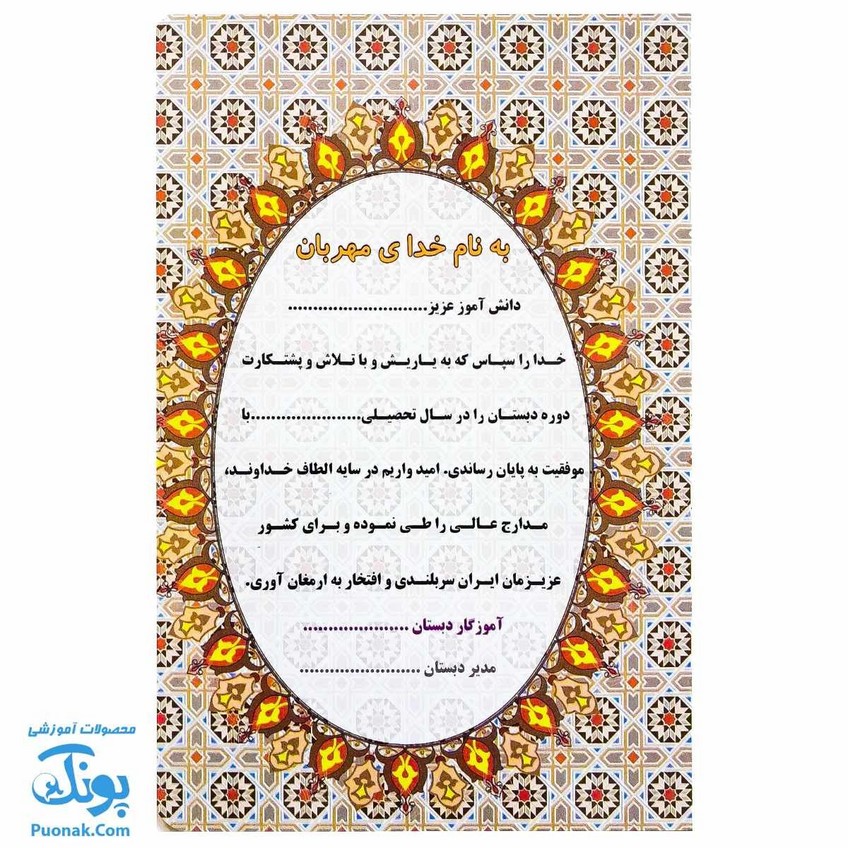 به نام خدا ی مهربان
دانش آموز عزیز............................
خدا را سپاس که به یاریش و با تلاش و پشتکارت
دوره دبستان را در سال تحصیلی......................با
موفقیت به پایان رساندی. امید واریم در سایه الطاف خداوند،
مدارج عالی را طی نموده و برای کشور
عزیزمان ایران سربلندی و افتخار به ارمغان آوری.
آموزگار دبستان .....................
مدیر دبستان ........................
محصولات آموزشی
پونک
Puonak.Com